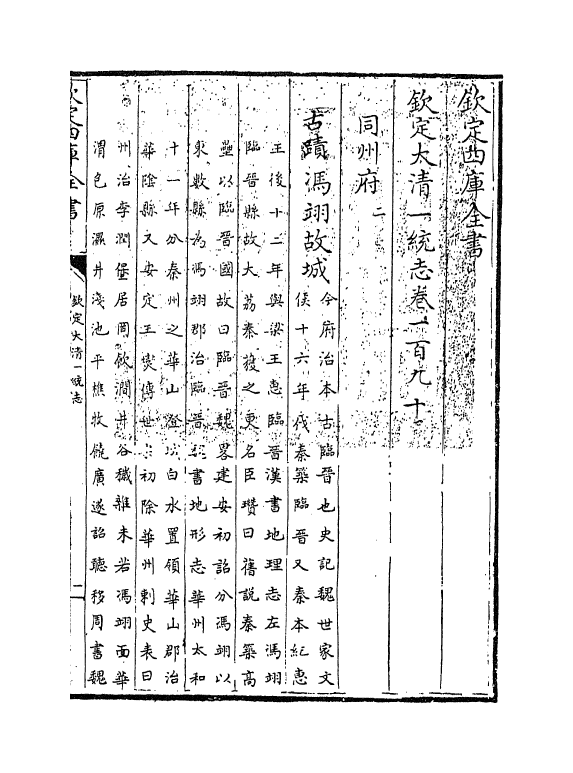 欽定四庫全書
欽定大清一統志卷一百九十
同州府二
古蹟
馮翊故城今府治本古臨晉也史記魏世家文
侯十六年伐秦築臨晉又秦本紀惠
王後十二年與梁王惠臨晉漢書地理志左馮翊
臨晉縣故大荔秦獲之更名臣瓚曰舊說秦築高
壘以臨晉國故曰臨晉魏畧建安初詔分馮翊以
東數縣為馮翊郡治臨晉書地形志華州太和
十一年分秦州之華山澄城白水置領華山郡治
華陰縣又安定王燮傳世初除華州刺史表曰
州治李潤堡居岡飲澗井谷穢雜未若馮翊面華
渭包原濕井淺池平樵牧饒廣遂詔聽移周書魏
欽定四庫全書
欽定大清一統志